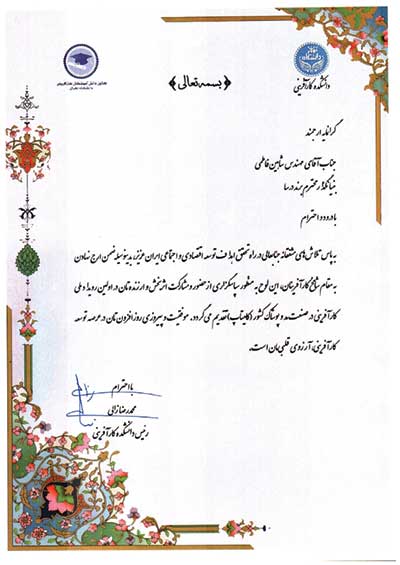 دانشکده کارآفرینی
﴿بسمه تعالی﴾
گرانمایه ارجمند
جناب آقای مهندس شاهین فاطمی
بنیانگذار محترم برند درسا
با درود و احترام
به پاس تلاش‌های مشفقانه جنابعالی در راه تحقق اهداف توسعه اقتصادی و اجتماعی ایران عزیز، بدینوسیله ضمن ارج نهادن
به مقام شامخ کارآفرینان، این لوح به منظور سپاسگزاری از حضور و مشارکت اثربخش و ارزنده‌تان در اولین رویداد ملی
کارآفرینی در صنعت مد و پوشاک کشور (کامیتاپ) تقدیم می‌گردد. موفقیت و پیروزی روزافزون‌تان در عرصه توسعه
کارآفرینی، آرزوی قلبی‌مان است.
با احترام
محمدرضا زالی
رئیس دانشکده کارآفرینی